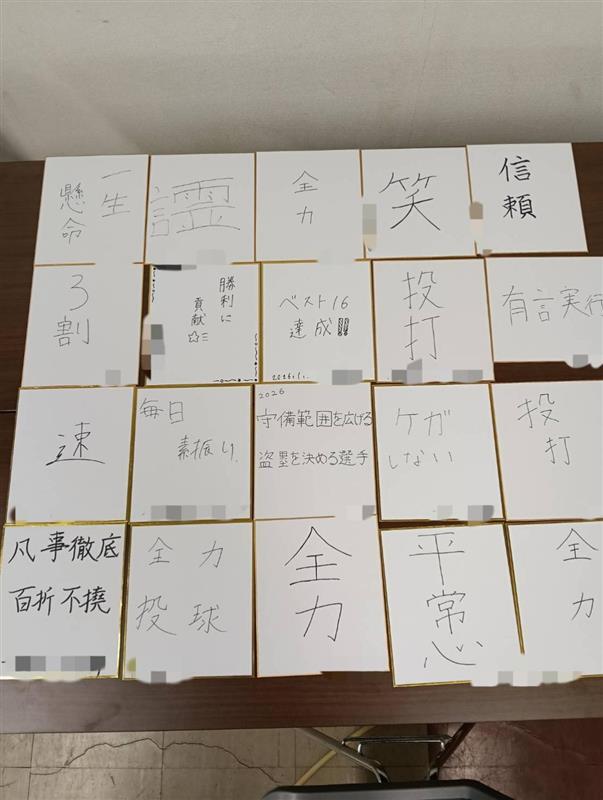 一生
懸命
言霊
全力
笑
信頼
3割
勝利に
貢献☆ミ
ベスト16
達成!!!
投打
有言実行
速
毎日
素振り.
2026
守備範囲を広げる
盗塁を決める選手
ケガ
しない
投打
凡事徹底
百折不撓
全力
投球
全力
平常心
全力